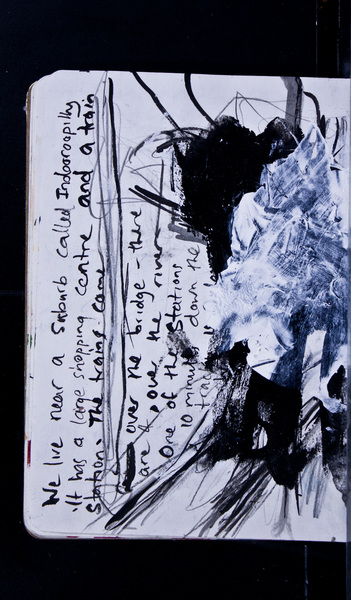 We live near a suburb called Indooroopilly
it has a large shopping centre and a train
Station. The trains come
over the bridge there
are 4 over the river
One of the Stations
10 minutes down the
track